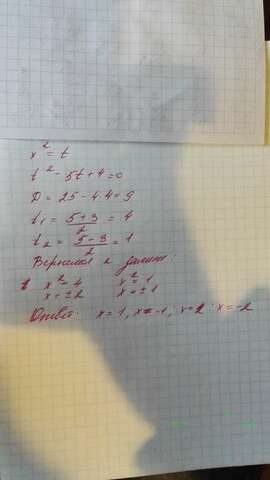 x² = t
t² - 5t + 4 = 0
D = 25 - 4·4 = 9
t₁ = (5+3)/2 = 4
t₂ = (5-3)/2 = 1
Вернемся к замене:
x² = 4 x² = 1
x = ±2 x = ±1
Ответ: x = 1, x = -1; x = 2; x = -2